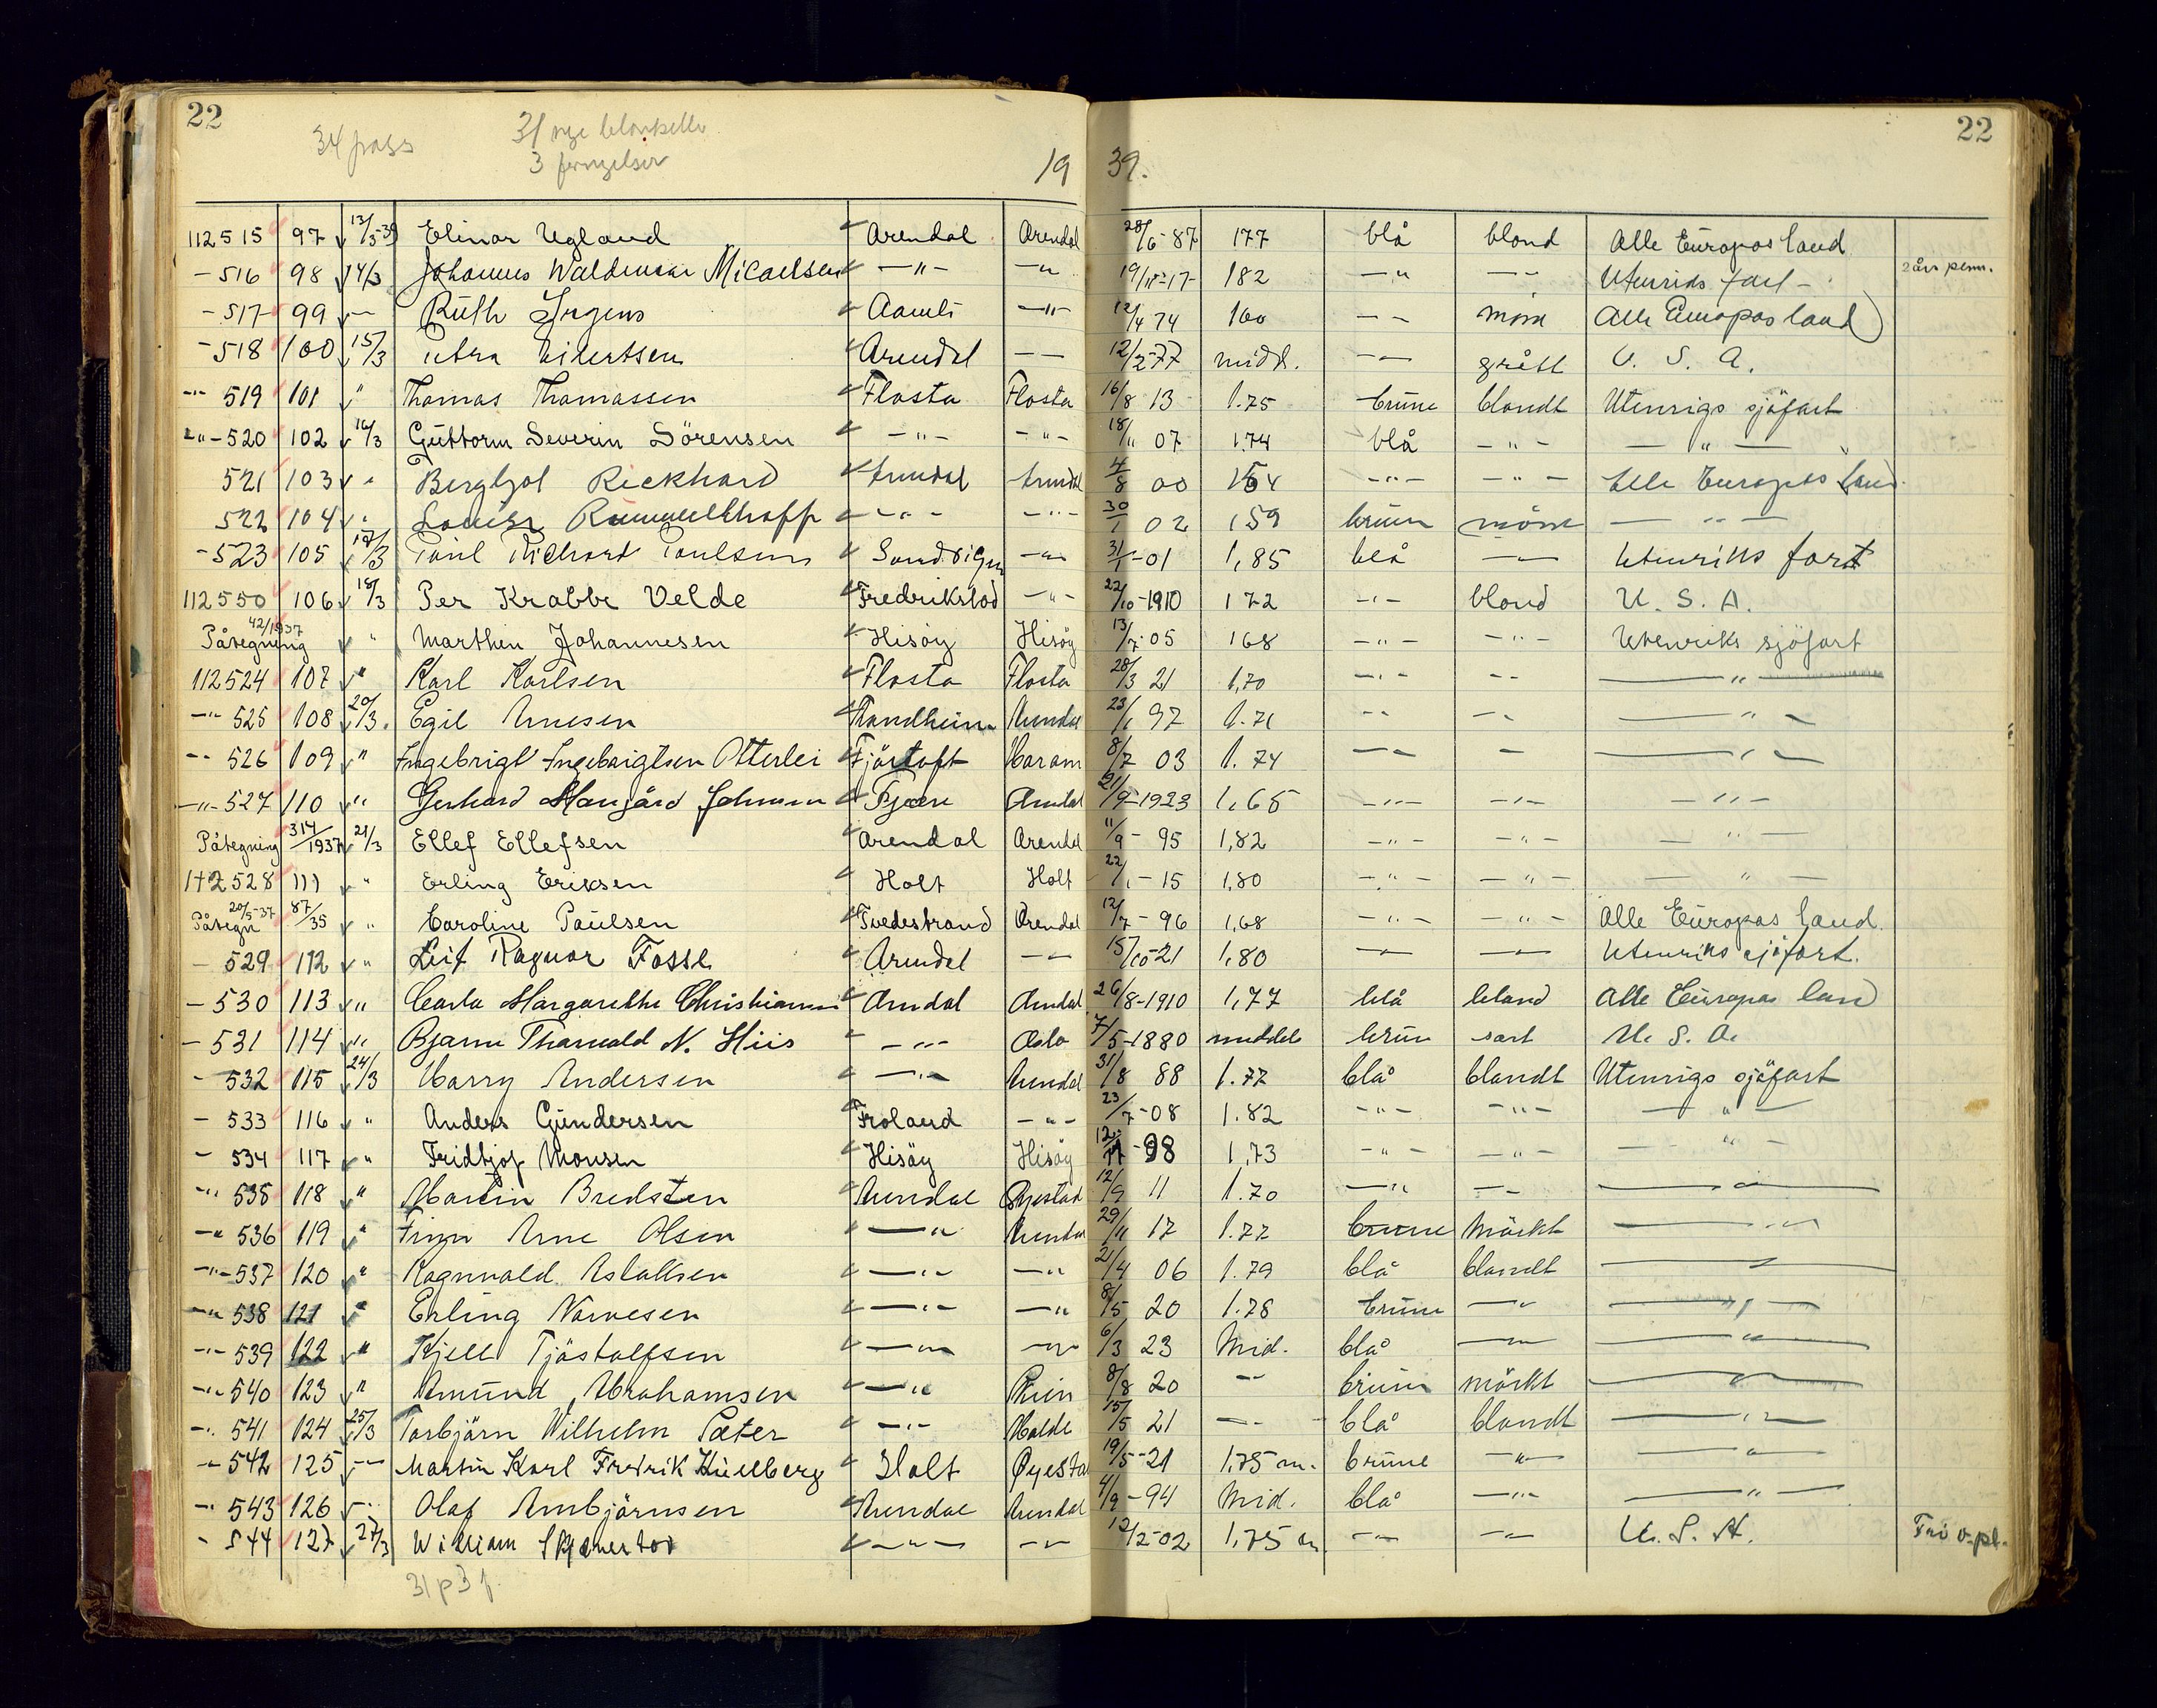 22
34 pass
31 nye blanketter
3 fornyelser
19 39.
22
112515 97 13/3-39 Elinor Ugland Arendal Arendal 28/6-87 177 blå blond Alle Europas land
-516 98 14/3 Johannes Waldemar Micaelsen -"- -"- 19/11-17 182 -"- -"- Utenriks fart - 2 års perm.
-517 99 -"- Ruth Jrgens Aamli -"- 12/4 74 160 -- mörk Alle Europas land
-518 100 15/3 Petra Eilertsen Arendal -- 12/2-77 midd. -- grått U. S. A.
-"- 519 101 " Thomas Thomassen Flosta Flosta 16/8 13 1.75 brune blondt Utenrigs sjöfart
-"-520 102 16/3 Guttorm Severin Sörensen -"- -"- 18/11 07 174 blå -"- -"-
521 103 " Bergljot Rickhard Arendal Arendal 4/8 00 164 -"- -"- Alle Europas land
522 104 " Louise Rummelhoff -"- -"- 30/1 02 159 brun mörk -"-
-523 105 17/3 Paul Richard Paulsen Sandvigen -"- 31/1-01 1,85 blå -"- Utenriks fart
112550 106 18/3 Per Krabbe Velde Fredrikstad -"- 22/10-1910 172 -"- blond U. S. A.
Påtegning 42/1937 " Marthin Johannesen Hisöy Hisöy 13/7-05 168 -"- -"- Utenriks sjöfart
112524 107 " Karl Karlsen Flosta Flosta 28/3 21 1,70 -"- -- -"-
-"- 525 108 20/3. Egil Arnesen Trondheim Arendal 23/1 97 1.71 -- -- -"-
-- 526 109 " Ingebrigt Ingebrigtsen Otterlei Fjörtoft Haram 8/7 03 1.74 -- - -"-
-"-527 110 " Gerhard Haugård Johnsen Fjære Arendal 21/9-1923 1,65 -"- -"- -"-
Påtegning 314/1937 21/3 Ellef Ellefsen Arendal Arendal 11/9-95 1,82 -"- -"- -"-
112528 111 " Erling Eriksen Holt Holt 22/1-15 1,80 -"- -"- -"-
Påtegn 20/5-37 87/35 " Caroline Paulsen Tvedestrand Arendal 12/7-96 1,68 -"- -"- Alle Europas land.
-529 112 " Leif Ragnar Fosse Arendal -- 15/10-21 1,80 -"- -"- Utenriks sjöfart.
-530 113 " Carla Margarethe Christiansen Arendal Arendal 26/8-1910 1,77 blå blond Alle Europas land
-531 114 " Bjarne Thorvald N. Hiis -"- Oslo 7/5-1880 middels brun sort U. S. A.
-532 115 24/3 Harry Andersen -"- Arendal 31/8 88 1.77 blå blondt Utenrigs sjöfart
-533 116 " Anders Gundersen Froland -"- 23/7-08 1.82 -"- -"- -"-
-534 117 " Fridtjof Monsen Hisöy Hisöy 12/11-98 1,73 -"- -"- -"-
-"- 535 118 " Martin Bredsten Arendal Øyestad 12/9 11 1.70 -"- -- -"-
-"- 536 119 " Finn Arne Olsen -"- Arendal 29/11 17 1.77 brune Mörkt -"-
-"-537 120 " Ragnvald Aslaksen -"- -"- 21/4 06 1.79 blå blondt -"-
-"- 538 121 " Erling Narvesen -"- -"- 8/5 20 1.78 brune -"- -"-
-"- 539 122 " Kjell Tjöstolfsen -"- -"- 6/3 23 Mid. blå -"- -"-
-"- 540 123 " Amund Abrahamsen -"- 8/8 20 -- brune mörkt -"-
-"- 541 124 25/3 Torbjörn Wilhelm Sæter -"- Molde 15/5 21 -- blå blondt -"-
-"- 542 125 -"- Martin Karl Fredrik Kullberg Holt Øyestad 19/5-21 1,75 m. brune -"- -"-
-"- 543 126 -"- Olaf Ambjörnsen Arendal Arendal 4/9-94 Mid. blå -"- -"-
- 544 127 27/3 William -"- -"- 12/2-02 1,75 m -"- -"- U. S. A. Fri v.pl.
31 p 3 f